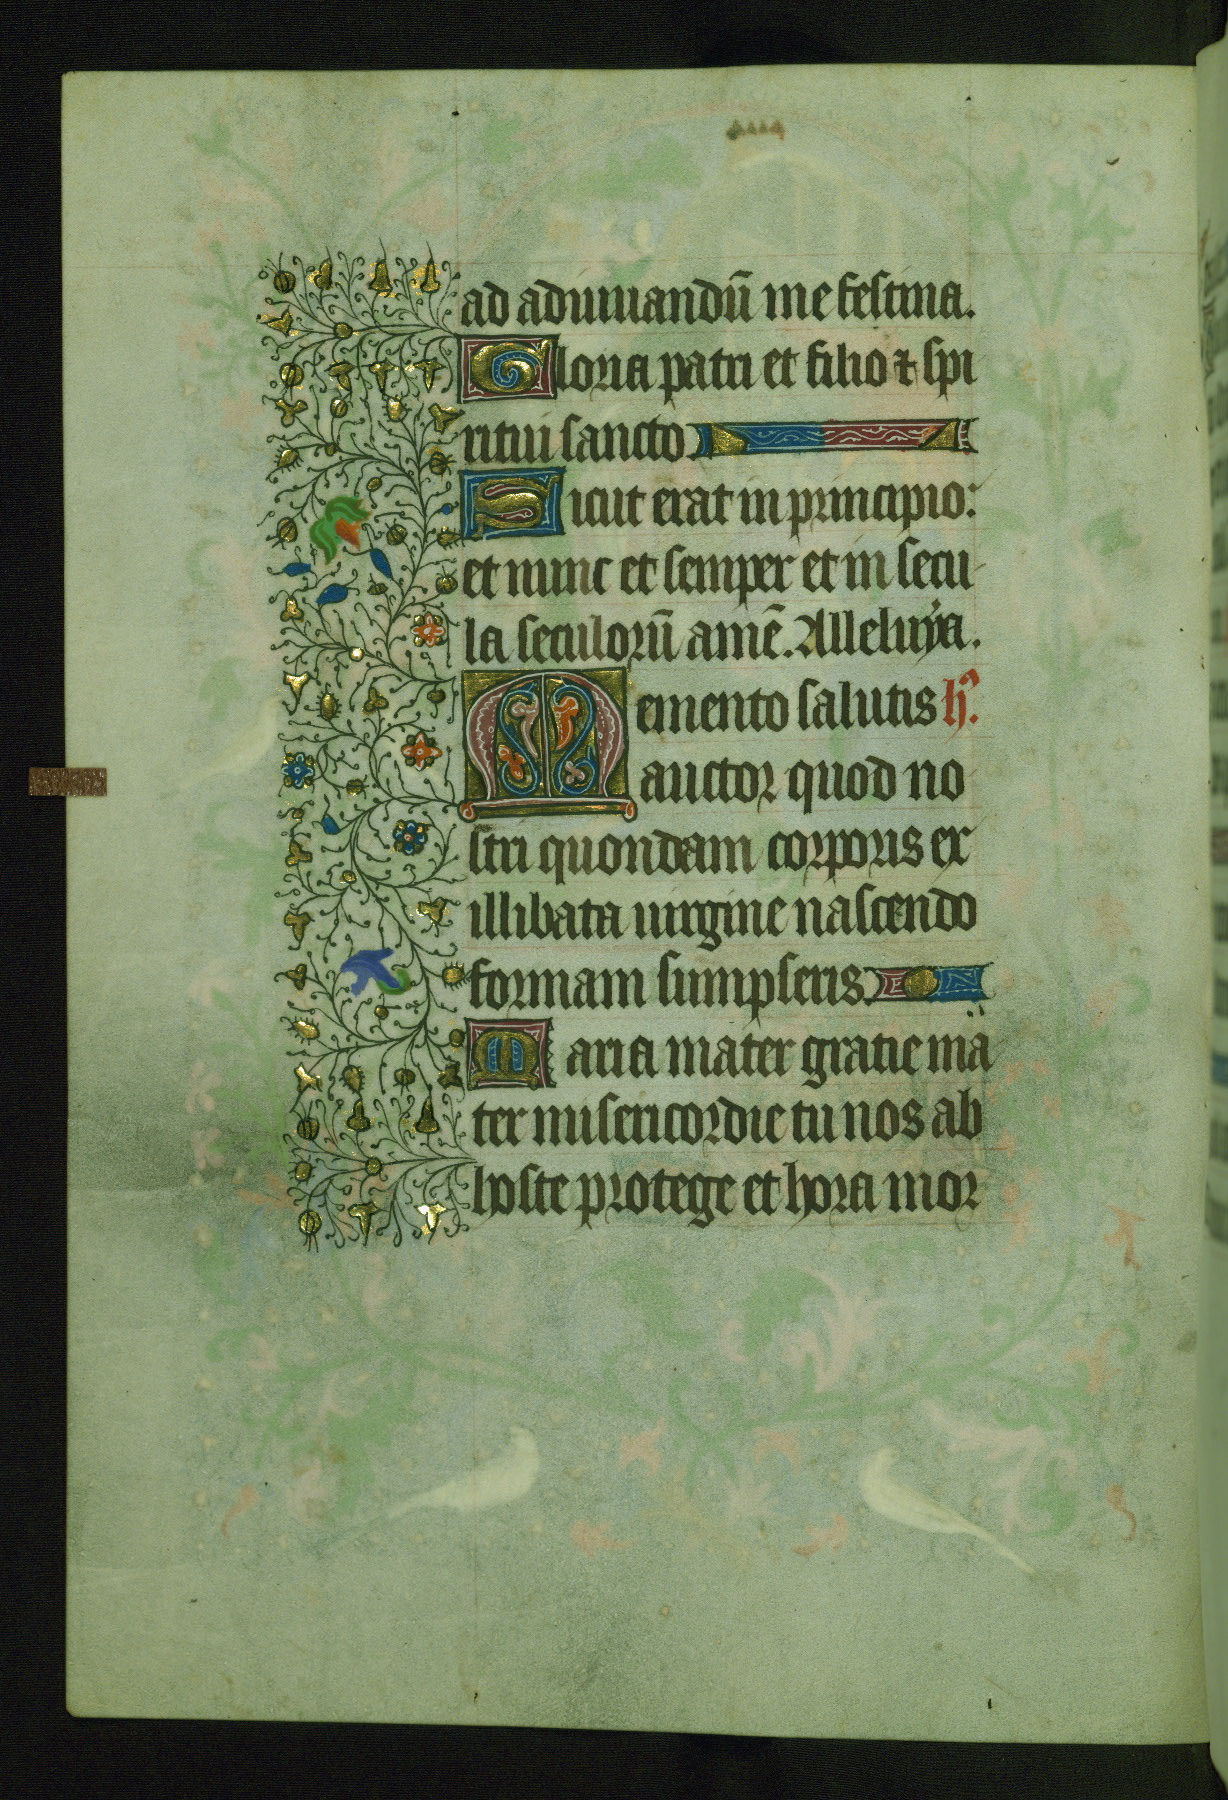 ad adiuuandū me festina.
Gloria patri et filio ⁊ spi
ritui sancto
Sicut erat in principio:
et nunc et semper et in secu
la seculorū amē. Alleluya.
Memento salutis h̾.
auctor quod no
stri quondam corporis ex
illibata uirgine nascendo
formam sumpseris.
Maria mater gratie ma
ter misericordie tu nos ab
hoste protege et hora mor